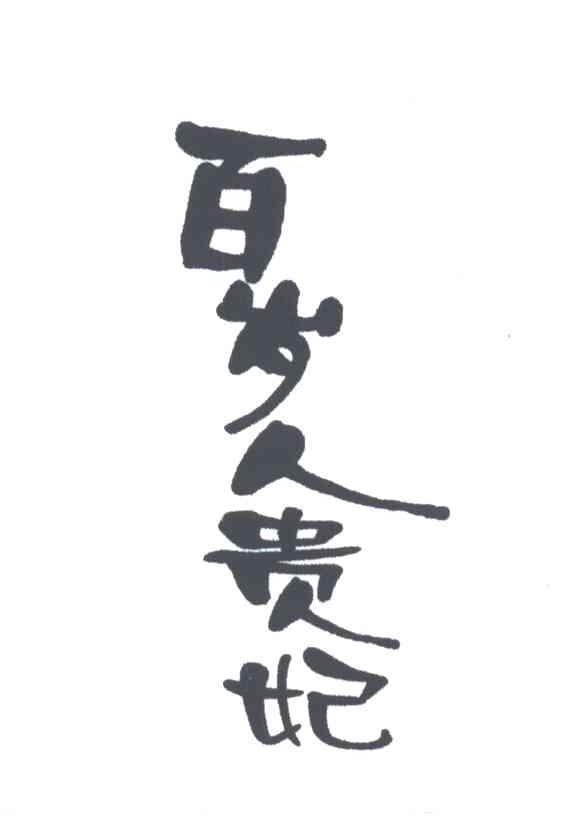 百岁人贵妃